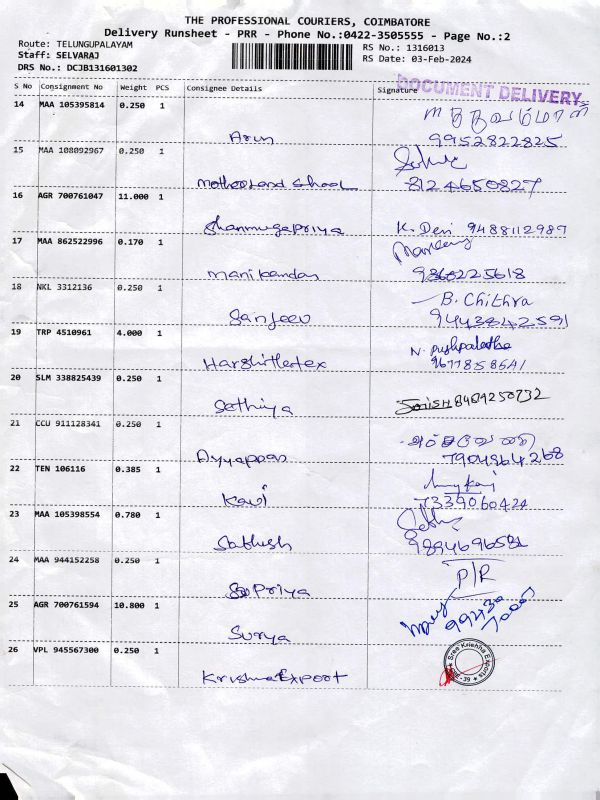 THE PROFESSIONAL COURIERS, COIMBATORE
Delivery Runsheet - PRR - Phone No.:0422-3505555 - Page No.:2
Route: TELUNGUPALAYAM
Staff: SELVARAJ
DRS No.: DCJB131601302
RS No.: 1316013
RS Date: 03-Feb-2024
DOCUMENT DELIVERY
S No Consignment No Weight PCS Consignee Details Signature
14 MAA 105395814 0.250 1
Arun 9952822825
15 MAA 108092967 0.250 1
Motherland School 8124650827
16 AGR 700761047 11.000 1
Shanmugapriya K. Devi 9488112987
17 MAA 862522996 0.170 1
Manikandan 9360225618
18 NKL 3312136 0.250 1 B. Chithra
Sanjeev 9443842591
19 TRP 4510961 4.000 1 N. pushpalatha
Harshittextex 9677858541
20 SLM 338825439 0.250 1
Sethiya
21 CCU 911128341 0.250 1
Ayyappan 7904864268
22 TEN 106116 0.385 1
Kavi 7339060424
23 MAA 105398554 0.780 1
Sathish 9894696581
24 MAA 944152258 0.250 1 P/R
Priya
25 AGR 700761594 10.800 1
Surya
26 VPL 945567300 0.250 1 Sree Krishna Exports
Krishna Export